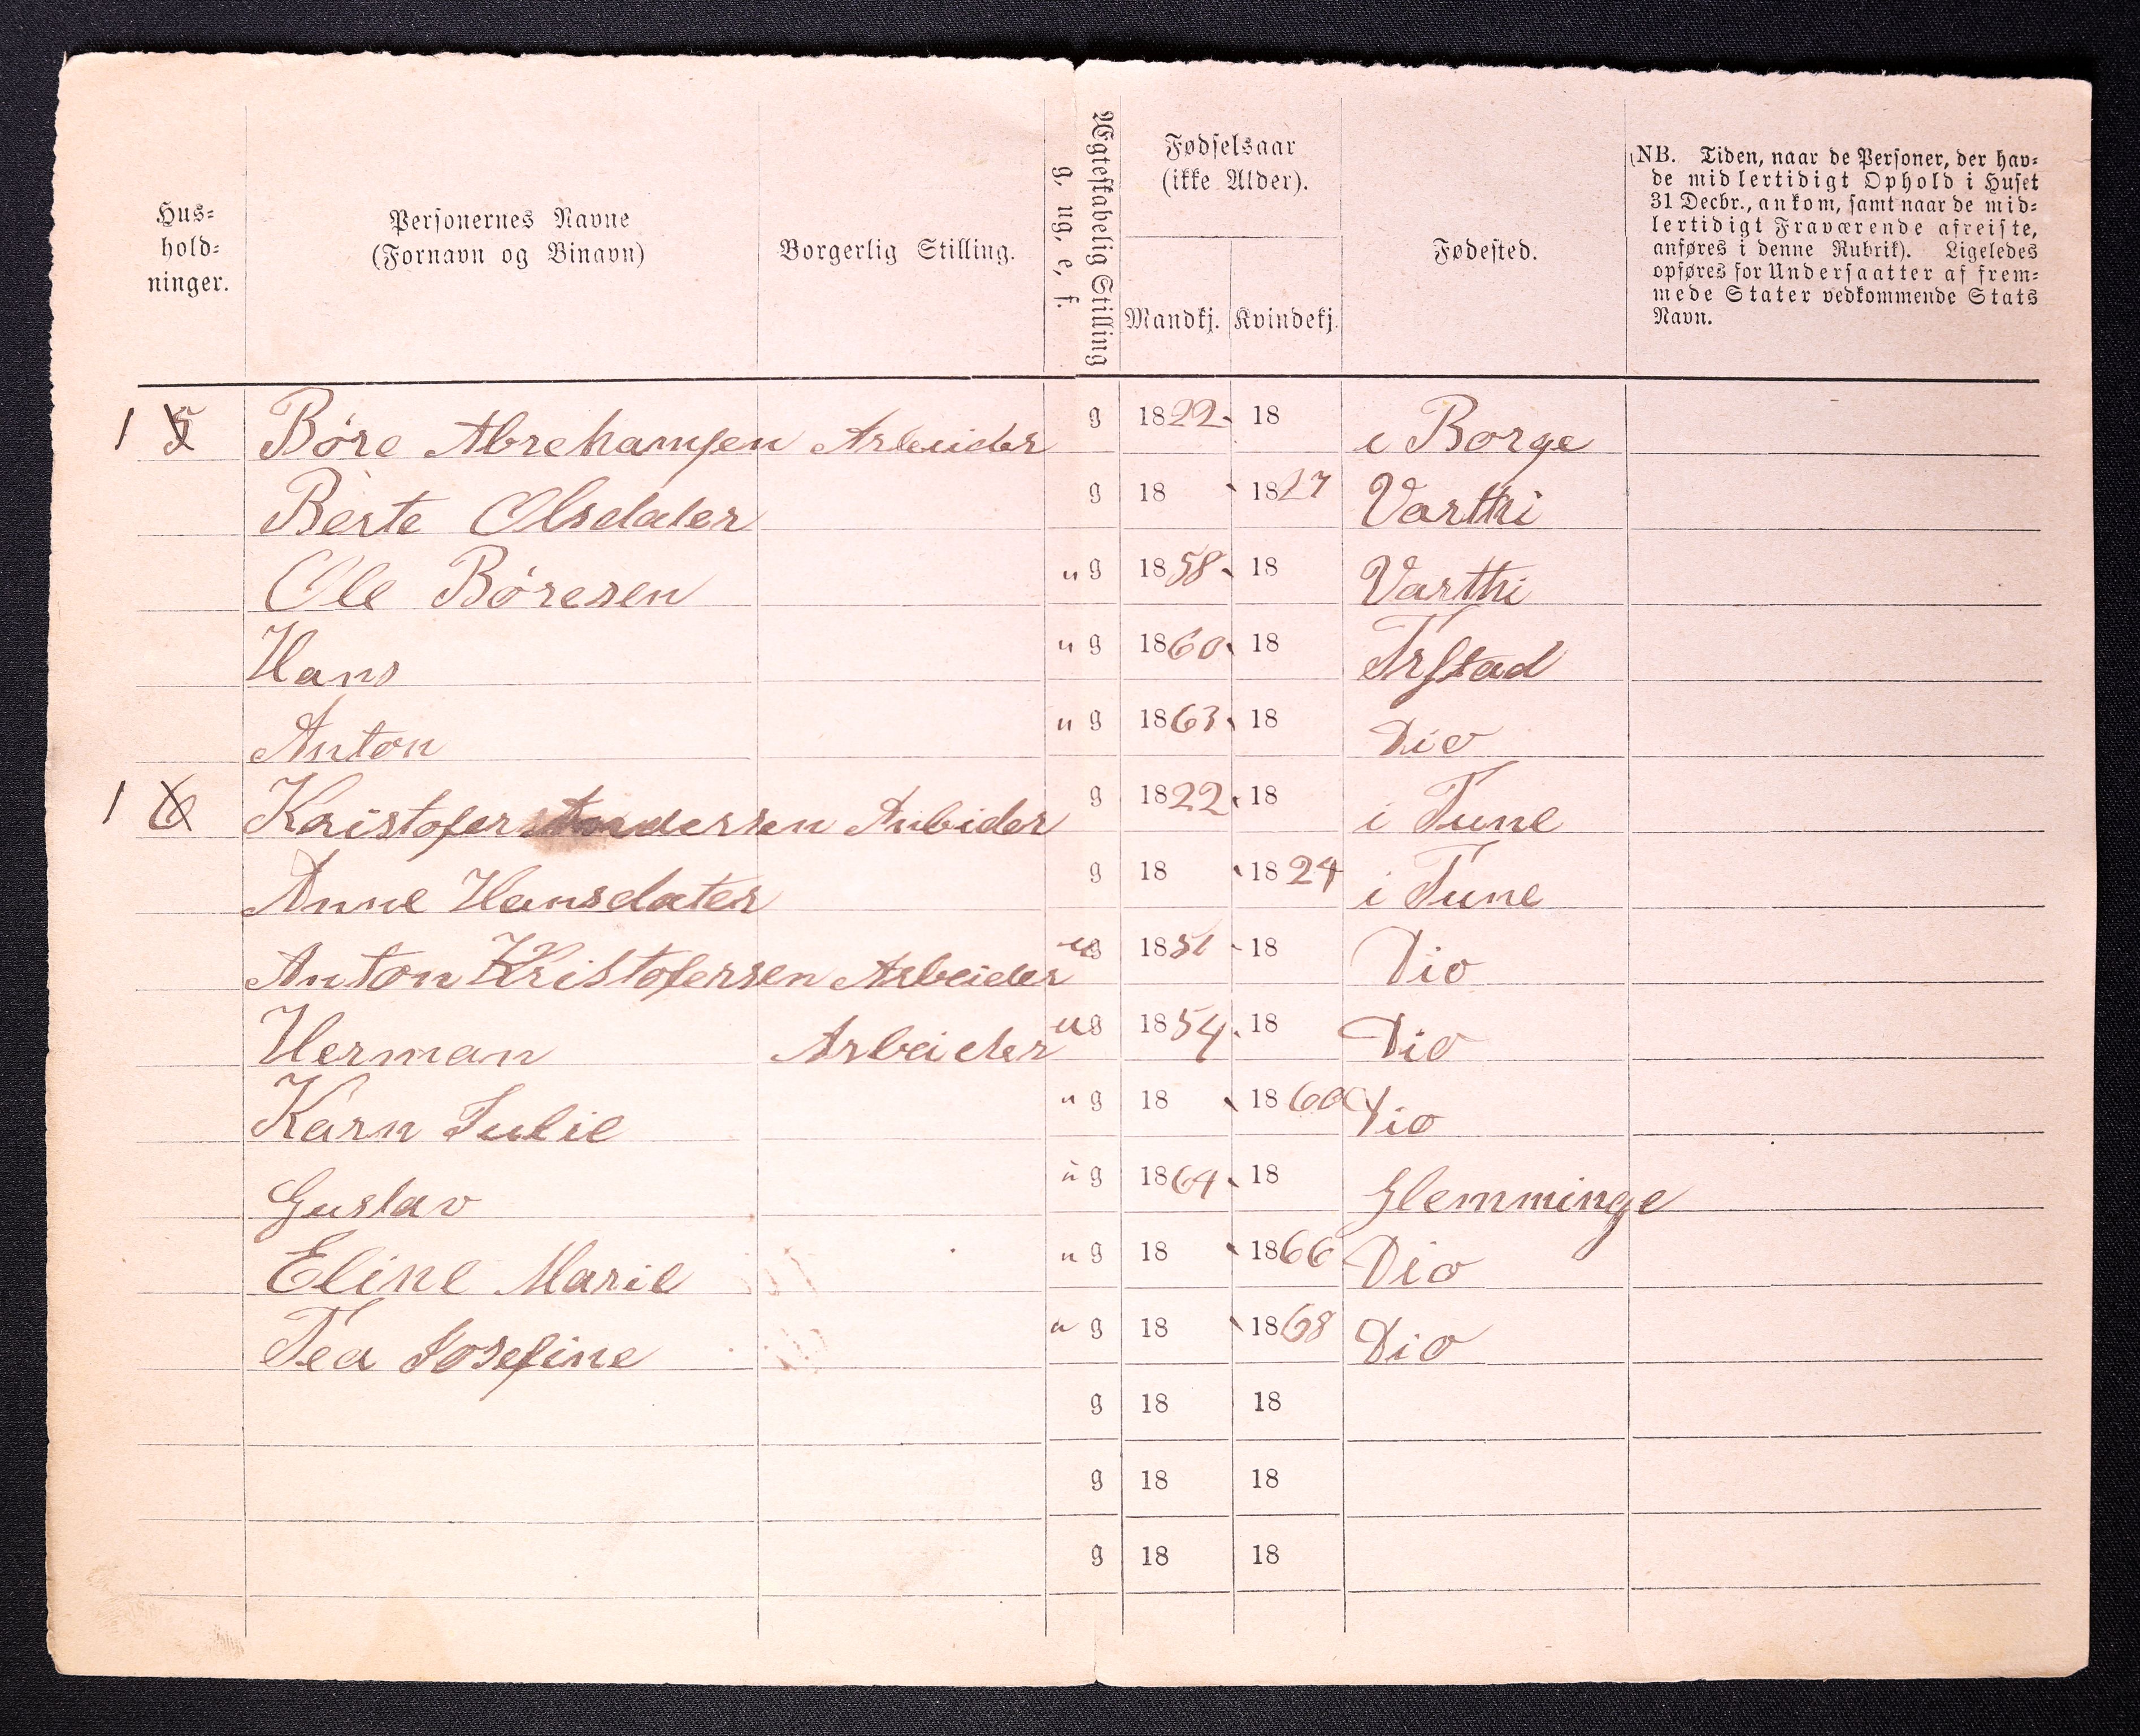 Hus-
hold-
ninger.
Personernes Navne
(Fornavn og Binavn)
Borgerlig Stilling.
Ægteskabelig Stilling
g, ug, e, f.
Fødselsaar
(ikke Alder).
Mandkj. Kvindekj.
Fødested.
(NB. Tiden, naar de Personer, der hav-
de midlertidigt Ophold i Huset
31 Decbr., ankom, samt naar de mid-
lertidigt Fraværende afreiste,
anføres i denne Rubrik). Ligeledes
opføres for Undersaatter af frem-
mede Stater vedkommende Stats
Navn.
1 5 Børe Abrehamsen Arbeider g 1822 18 i Borge
Berte Olsdater g 18 1827 Vartti
Ole Böresen u g 1858 18 Vartti
Hans u g 1860 18
Anton u g 1863 18 Dio
1 6 Kristofer Andersen Arbider g 1822 18 i Tune
Anne Hansdater g 18 1824 i Tune
Anton Kristofersen Arbeider ug 1851 18 Dio
Herman Arbeider ug 1854 18 Dio
Karn Julie u g 18 1860 Dio
Gustav u g 1864 18 Glemminge
Eline Marie u g 18 1866 Dio
Tea Josefine u g 18 1868 Dio
g 18 18
g 18 18
g 18 18